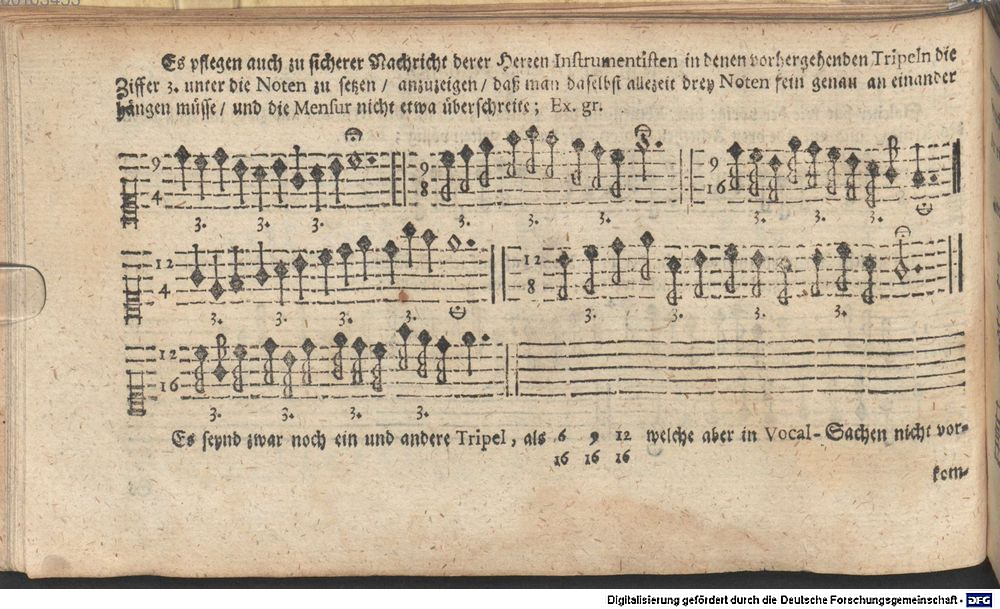 Es pflegen auch zu sicherer Nachricht derer Herren Instrumentisten in denen vorhergehenden Tripeln die
Ziffer 3. unter die Noten zu setzen / anzuzeigen / daß man daselbst allezeit drey Noten fein genau an einander
hängen müsse / und die Mensur nicht etwa überschreite ; Ex. gr.
9 9 9
4 8 16
3. 3. 3. 3. 3. 3. 3. 3. 3.
12 12
4 8
3. 3. 3. 3. 3. 3. 3. 3.
12
16
3. 3. 3. 3.
Es seynd zwar noch ein und andere Tripel, als 6 9 12 welche aber in Vocal-Sachen nicht vor-
16 16 16
kom-
Digitalisierung gefördert durch die Deutsche Forschungsgemeinschaft - DFG